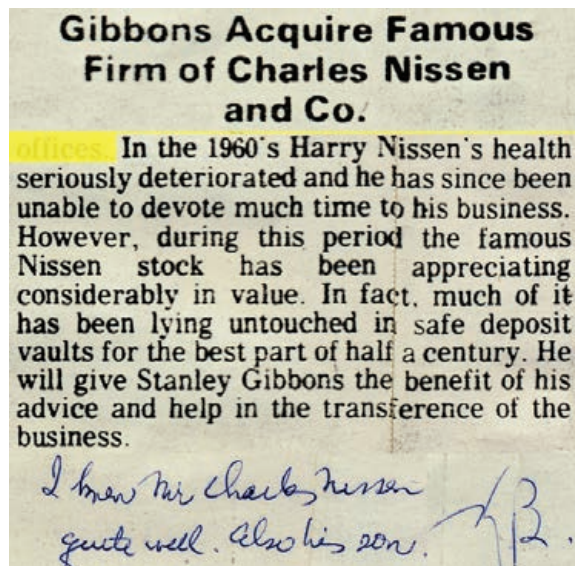 Gibbons Acquire Famous
Firm of Charles Nissen
and Co.
offices. In the 1960's Harry Nissen's health
seriously deteriorated and he has since been
unable to devote much time to his business.
However, during this period the famous
Nissen stock has been appreciating
considerably in value. In fact, much of it
has been lying untouched in safe deposit
vaults for the best part of half a century. He
will give Stanley Gibbons the benefit of his
advice and help in the transference of the
business.
I knew Mr Charles Nissen
quite well. Also his son.